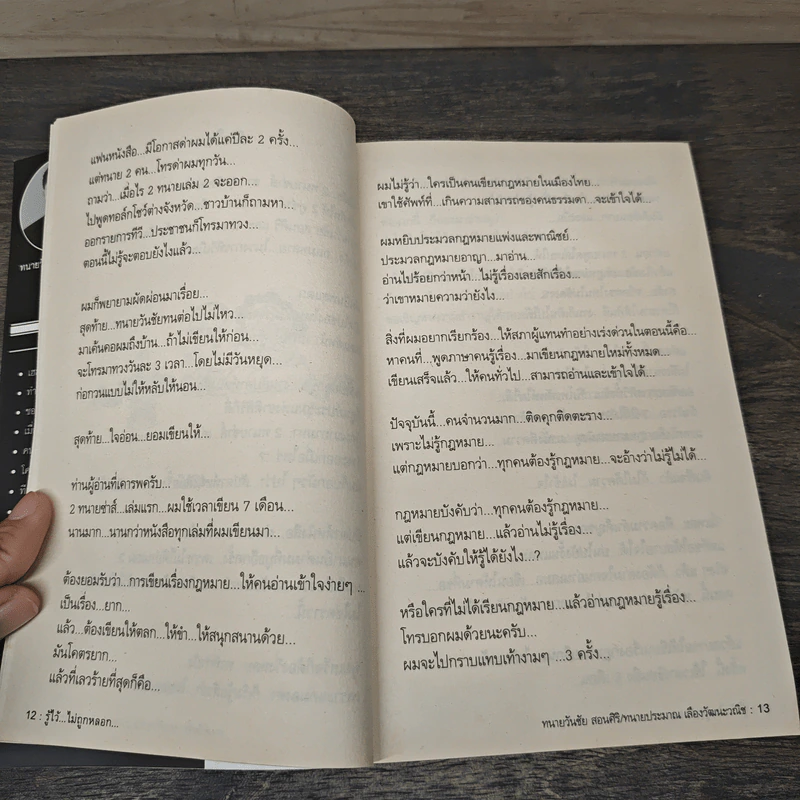 แฟนหนังสือ...มีโอกาสด่าผมได้แค่ปีละ 2 ครั้ง...
แต่ทนาย 2 คน...โทรด่าผมทุกวัน...
ถามว่า...เมื่อไร 2 ทนายเล่ม 2 จะออก...
ไปพูดทอล์กโชว์ต่างจังหวัด...ชาวบ้านก็ถามหา...
ออกรายการทีวี...ประชาชนก็โทรมาทวง...
ตอนนี้ไม่รู้จะตอบยังไงแล้ว...
ผมก็พยายามผัดผ่อนมาเรื่อย...
สุดท้าย...ทนายวันชัยทนต่อไปไม่ไหว...
มาเค้นคอผมถึงบ้าน...ถ้าไม่เขียนให้ก่อน...
จะโทรมาทวงวันละ 3 เวลา...โดยไม่มีวันหยุด...
ก่อกวนแบบไม่ให้หลับให้นอน...
สุดท้าย...ใจอ่อน...ยอมเขียนให้...
ท่านผู้อ่านที่เคารพครับ...
2 ทนายซ่าส์...เล่มแรก...ผมใช้เวลาเขียน 7 เดือน...
นานมาก...นานกว่าหนังสือทุกเล่มที่ผมเขียนมา...
ต้องยอมรับว่า...การเขียนเรื่องกฎหมาย...ให้คนอ่านเข้าใจง่ายๆ ...
เป็นเรื่อง...ยาก...
แล้ว...ต้องเขียนให้ตลก...ให้ขำ...ให้สนุกสนานด้วย...
มันโคตรยาก...
แล้วที่เลวร้ายที่สุดก็คือ...
12 : รู้ไว้...ไม่ถูกหลอก...
ผมไม่รู้ว่า...ใครเป็นคนเขียนกฎหมายในเมืองไทย...
เขาใช้ศัพท์ที่...เกินความสามารถของคนธรรมดา...จะเข้าใจได้...
ผมหยิบประมวลกฎหมายแพ่งและพาณิชย์...
ประมวลกฎหมายอาญา...มาอ่าน...
อ่านไปร้อยกว่าหน้า...ไม่รู้เรื่องเลยสักเรื่อง...
ว่าเขาหมายความว่ายังไง...
สิ่งที่ผมอยากเรียกร้อง...ให้สภาผู้แทนทำอย่างเร่งด่วนในตอนนี้คือ...
หาคนที่...พูดภาษาคนรู้เรื่อง...มาเขียนกฎหมายใหม่ทั้งหมด...
เขียนเสร็จแล้ว...ให้คนทั่วไป...สามารถอ่านและเข้าใจได้...
ปัจจุบันนี้...คนจำนวนมาก...ติดคุกติดตะราง...
เพราะไม่รู้กฎหมาย...
แต่กฎหมายบอกว่า...ทุกคนต้องรู้กฎหมาย...จะอ้างว่าไม่รู้ไม่ได้...
กฎหมายบังคับว่า...ทุกคนต้องรู้กฎหมาย...
แต่เขียนกฎหมาย...แล้วอ่านไม่รู้เรื่อง...
แล้วจะบังคับให้รู้ได้ยังไง...?
หรือใครที่ไม่ได้เรียนกฎหมาย...แล้วอ่านกฎหมายรู้เรื่อง...
โทรบอกผมด้วยนะครับ...
ผมจะไปกราบแทบเท้างามๆ ...3 ครั้ง...
ทนายวันชัย สอนศิริ/ทนายประมาณ เลืองวัฒนะวณิช : 13